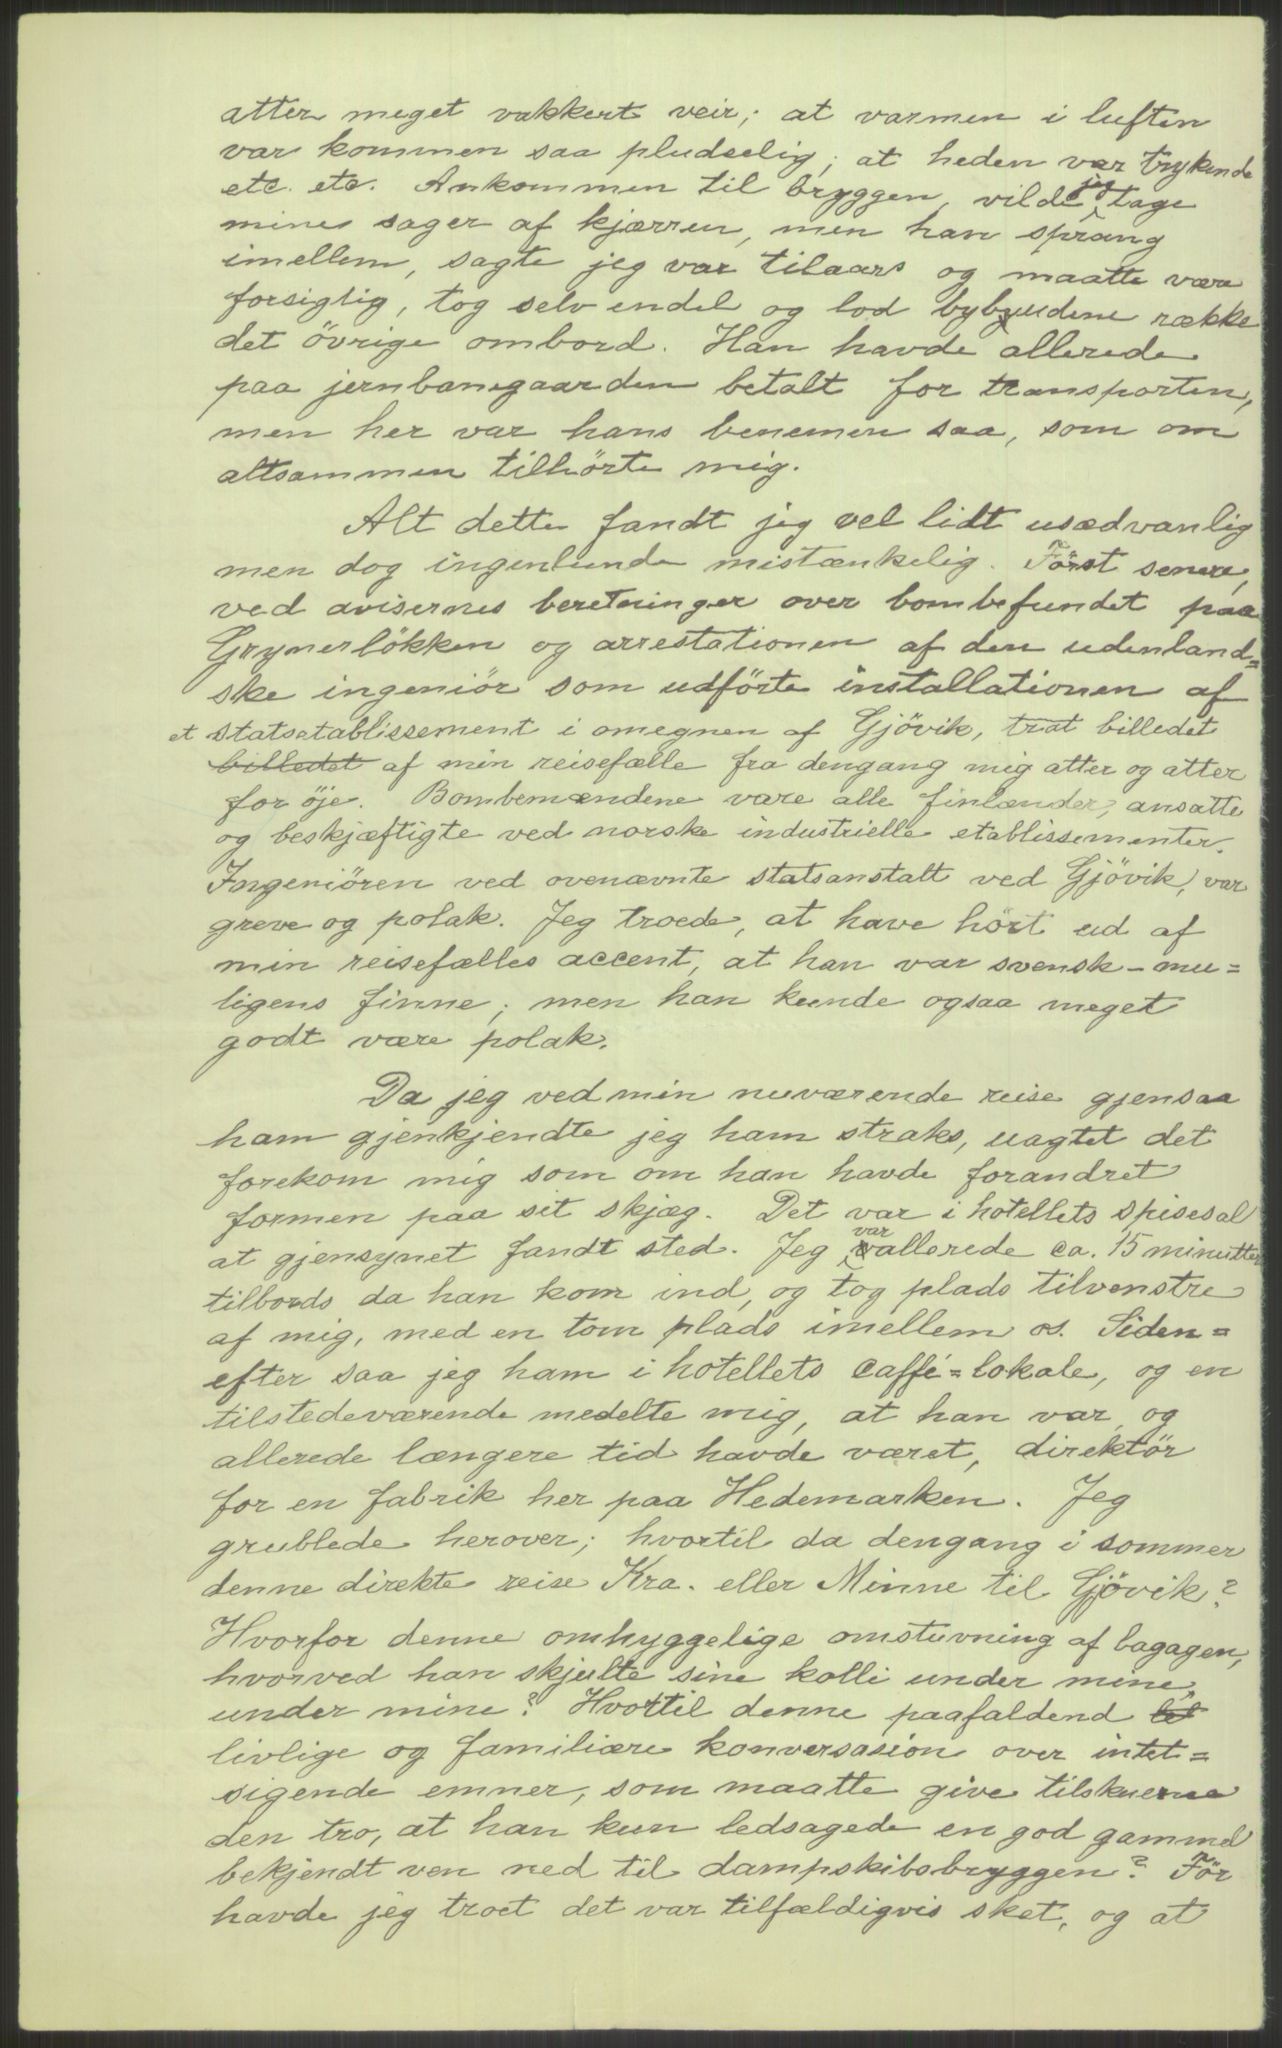 atter meget vakkert veir; at varmen i luften
var kommen saa pludselig; at heden var trykende
etc. etc. Ankommen til bryggen, vilde jeg tage
mine sager af kjærren, men han sprang
imellem, sagte jeg var tilaars og maatte være
forsigtig, tog selv endel og lod bybudene række
det övrige ombord. Han havde allerede
paa jernbanegaarden betalt for transporten,
men her var hans benemen saa, som om
altsammen tilhörte mig.
Alt dette fandt jeg vel lidt usædvanlig
men dog ingenlunde mistænkelig. Först senere,
ved avisernes beretninger over bombefundet paa
Grynerlökken og arrestationen af den udenland=
ske ingeniör som udförte installationen af
et statsetablissement i omegnen af Gjövik, trat billedet
billedet af min reisefælle fra dengang mig atter og atter
for öje. Bombemændene vare alle finlænder, ansatte
og beskjæftigte ved norske industrielle etablissementer.
Ingeniören ved ovenævnte statsanstalt ved Gjövik, var
greve og polak. Jeg troede, at have hört ud af
min reisefælles accent, at han var svensk - mu=
ligens finne; men han kunde ogsaa meget
godt være polak.
Da jeg ved min nuværende reise gjensaa
ham gjenkjendte jeg ham straks, uagtet det
forekom mig som om han havde forandret
formen paa sit skjæg. Det var i hotellets spisesal
at gjensynet fandt sted. Jeg var allerede ca. 15 minutter
tilbords da han kom ind, og tog plads tilvenstre
af mig, med en tom plads imellem os. Siden=
efter saa jeg ham i hotellets caffé=lokale, og en
tilstedeværende medelte mig, at han var og
allerede længere tid havde været, direktör
for en fabrik her paa Hedemarken. Jeg
grublede herover; hvortil da dengang i sommer
denne direkte reise Kra. eller Minne til Gjövik?
Hvorfor denne omhyggelige omstuvning af bagagen,
hvorved han skjulte sine kolli under mine,
under mine? Hvortil denne paafaldend
livlige og familiære konversasion over intet=
sigende emner, som maatte give tilskuerne
den tro, at han kun ledsagede en god gammel
bekjendt ven ned til dampskibsbryggen? För
havde jeg troet det var tilfældigvis sket, og at